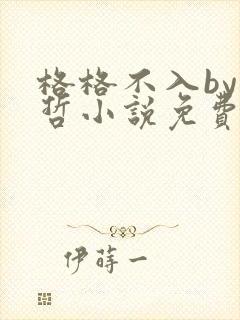 格格不入by
哲小說免費
伊蒔一